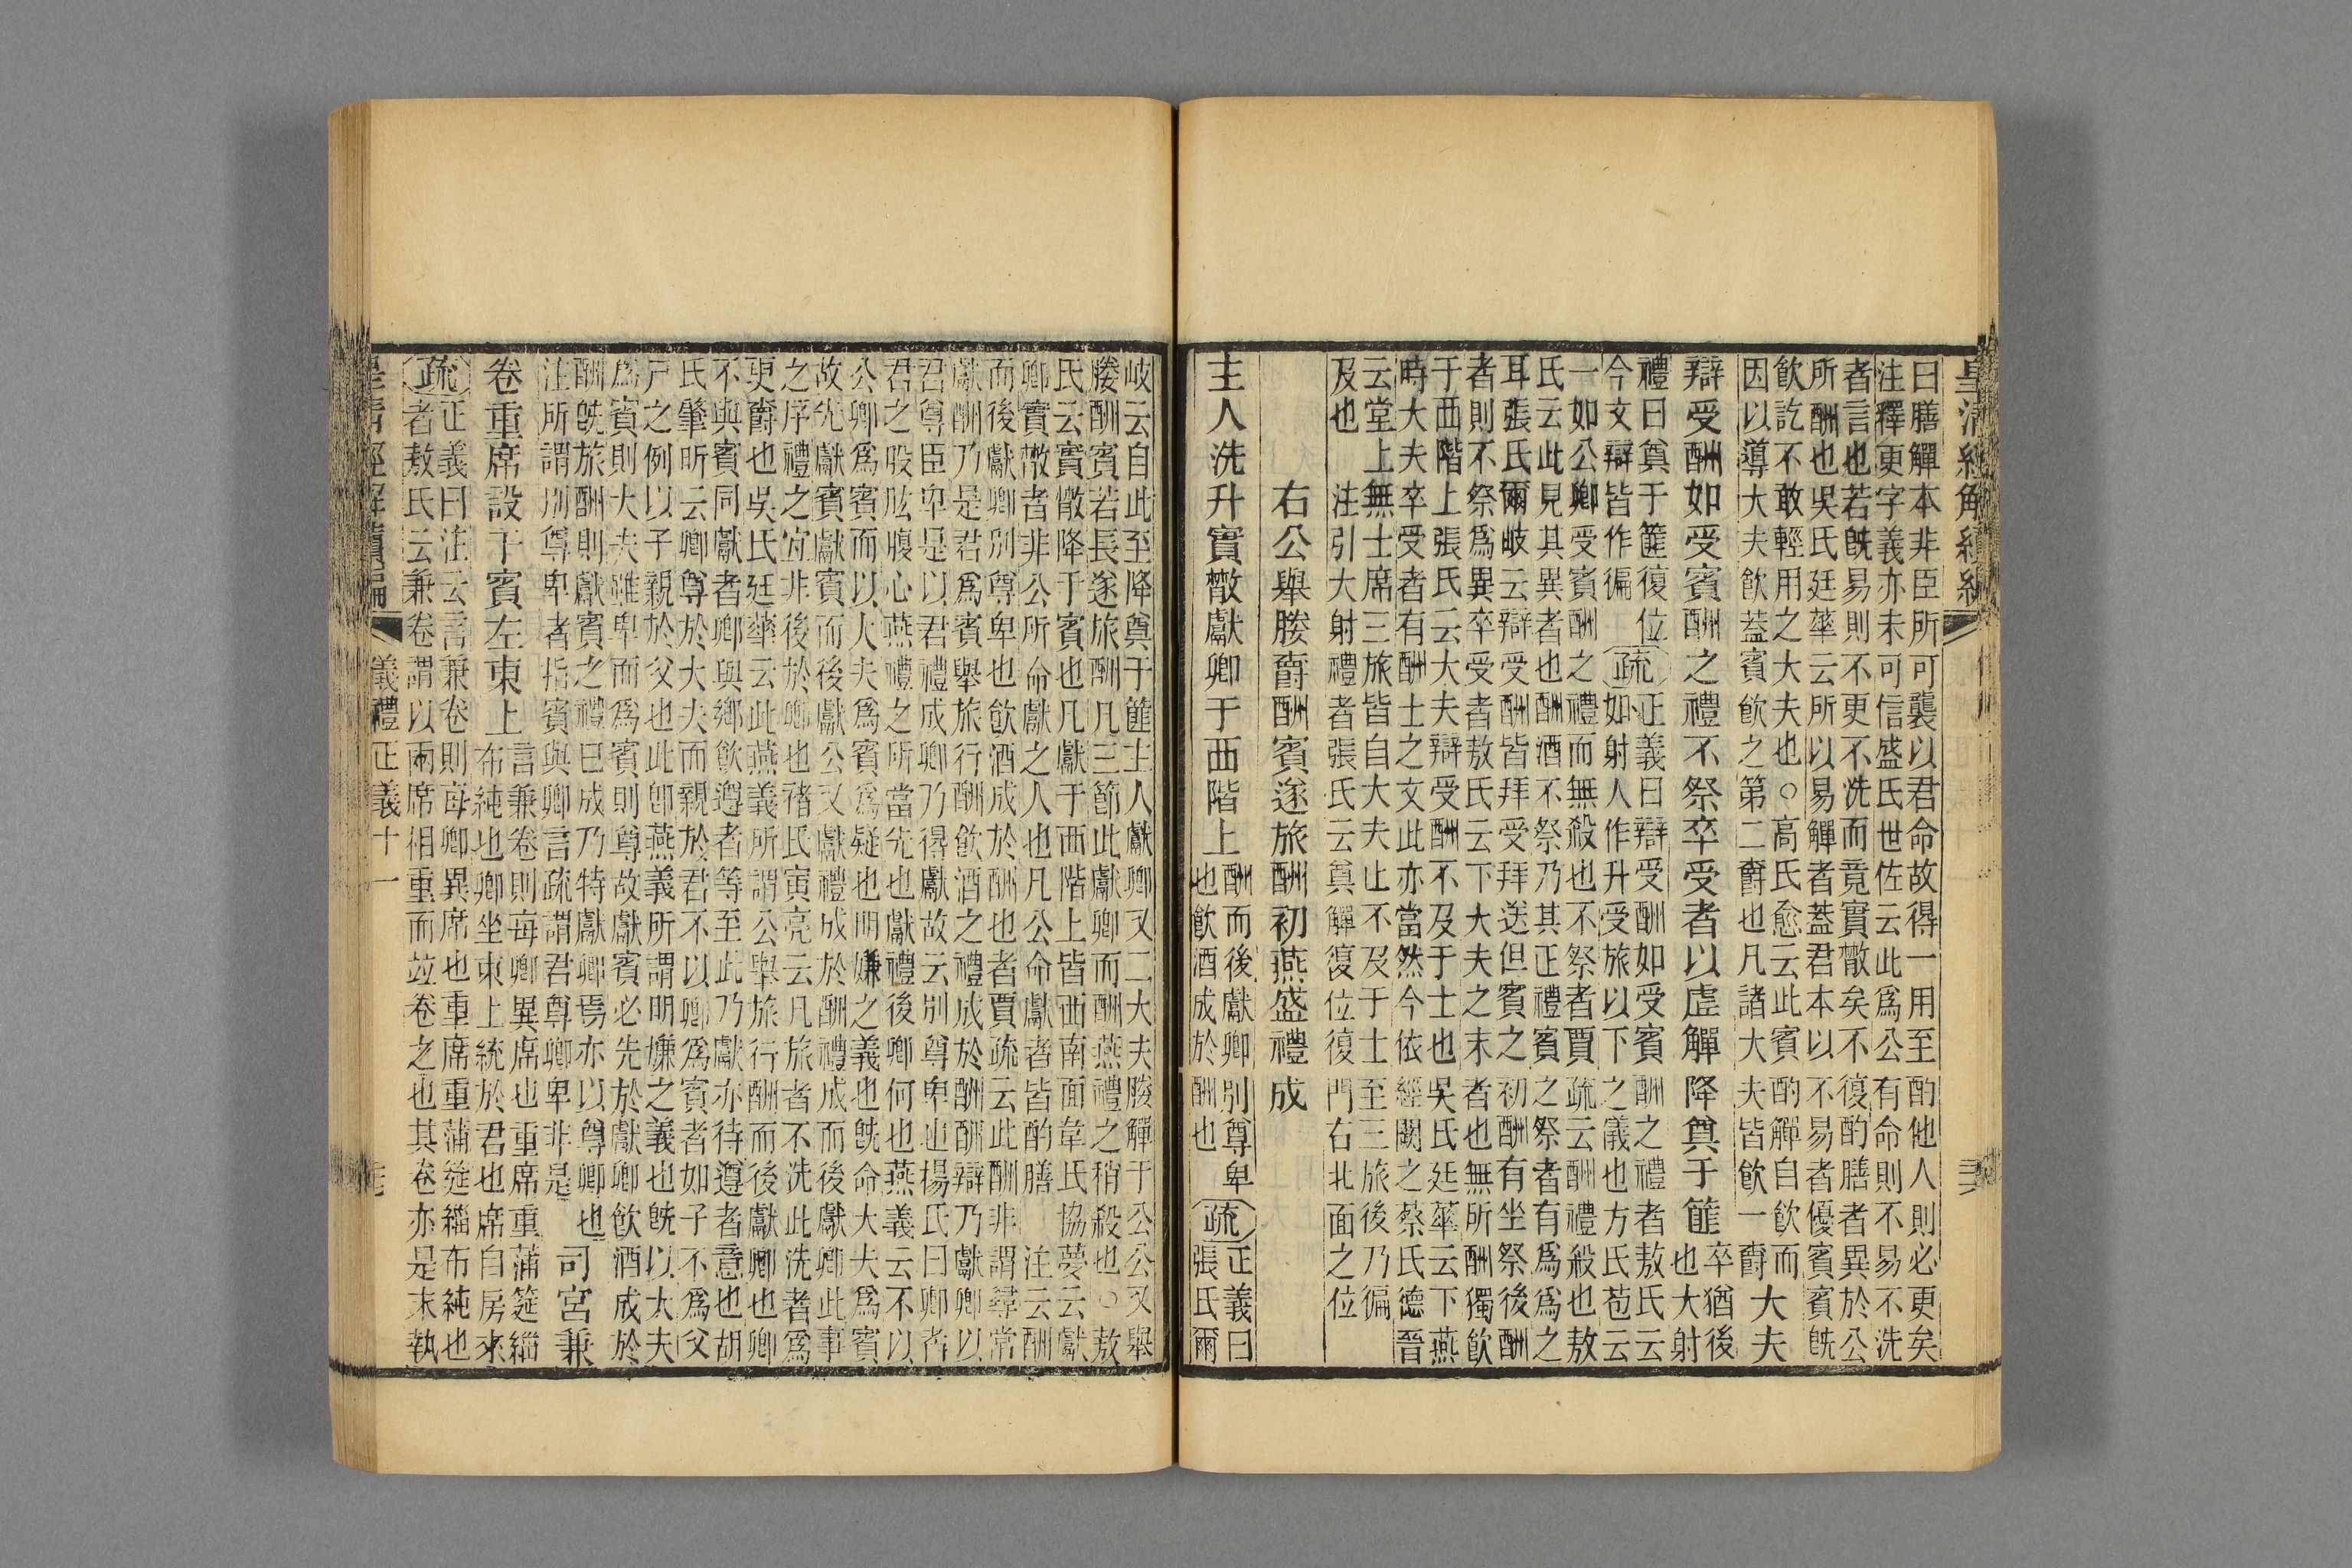 皇清經解續編
曰膳觶本非臣所可襲以君命故得一用至酌他人則必更矣
注釋更字義亦未可信盛氏世佐云此爲公有命則不易不洗
者言也若旣易則不更不洗而竟實散矣不復酌膳者異於公
所酬也吳氏廷華云所以易觶者蓋君本以不易者優賓賓旣
飮訖不敢輕用之大夫也○高氏愈云此賓酌觶自飮而
因以導大夫飮蓋賓飮之第二爵也凡諸大夫皆飮一爵
大夫
辯受酬如受賓酬之禮不祭卒受者以虛觶降奠于篚
卒猶後
也大射
禮曰奠于篚復位
疏
正義曰辯受酬如受賓酬之禮者敖氏云
今文辯皆作徧
如射人作升受旅以下之儀也方氏苞云
一如公卿受賓酬之禮而無殺也不祭者賈疏云酬禮殺也敖
氏云此見其異者也酬酒不祭乃其正禮賓之祭者有爲爲之
耳張氏爾岐云辯受酬皆拜受拜送但賓之初酬有坐祭後酬
者則不祭爲異卒受者敖氏云下大夫之末者也無所酬獨飮
于西階上張氏云大夫辯受酬不及于士也吳氏廷華云下燕
時大夫卒受者有酬士之文此亦當然今依經闕之蔡氏德晉
云堂上無士席三旅皆自大夫止不及于士至三旅後乃徧
及也　注引大射禮者張氏云奠觶復位復門右北面之位
右公舉媵爵酬賓遂旅酬初燕盛禮成
主人洗升實散獻卿于西階上
酬而後獻卿別尊卑
也飮酒成於酬也
疏
正義曰
張氏爾
岐云自此至降奠于篚主人獻卿又二大夫媵觶于公公又舉
媵酬賓若長遂旅酬凡三節此獻卿而酬燕禮之稍殺也○敖
氏云實散降于賓也凡獻于西階上皆西南面韋氏協夢云獻
卿實散者非公所命獻之人也凡公命獻者皆酌膳　注云酬
而後獻卿別尊卑也飮酒成於酬也者賈疏云此酬非謂尋常
獻酬乃是君爲賓舉旅行酬飮酒之禮成於酬酬辯乃獻卿以
君尊臣卑是以君禮成卿乃得獻故云別尊卑也楊氏曰卿者
君之股肱腹心燕禮之所當先也獻禮後卿何也燕義云不以
公卿爲賓而以大夫爲賓爲疑也明嫌之義也旣命大夫爲賓
故先獻賓獻賓而後獻公又獻禮成於酬禮成而後獻卿此事
之序禮之宜非後於卿也褚氏寅亮云凡旅者不洗此洗者爲
更爵也吳氏廷華云此燕義所謂公舉旅行酬而後獻卿也卿
不與賓同獻者鄉與鄉飮遵者等至此乃獻亦待遵者意也胡
氏肇昕云卿尊於大夫而親於君不以卿爲賓者如子不爲父
尸之例以子親於父也此卽燕義所謂明嫌之義也旣以大夫
爲賓則大夫雖卑而爲賓則尊故獻賓必先於獻卿飮酒成於
酬旣旅酬則獻賓之禮已成乃特獻卿焉亦以尊卿也
注所謂別尊卑者指賓與卿言疏謂君尊卿卑非是
司宮兼
卷重席設于賓左東上
言兼卷則每卿異席也重席重蒲筵緇
布純也卿坐東上統於君也席自房來
疏
正義曰注云言兼卷則每卿異席也重席重蒲筵緇布純也
者敖氏云兼卷謂以兩席相重而竝卷之也其卷亦是末執
皇清經解續編
儀禮正義十一